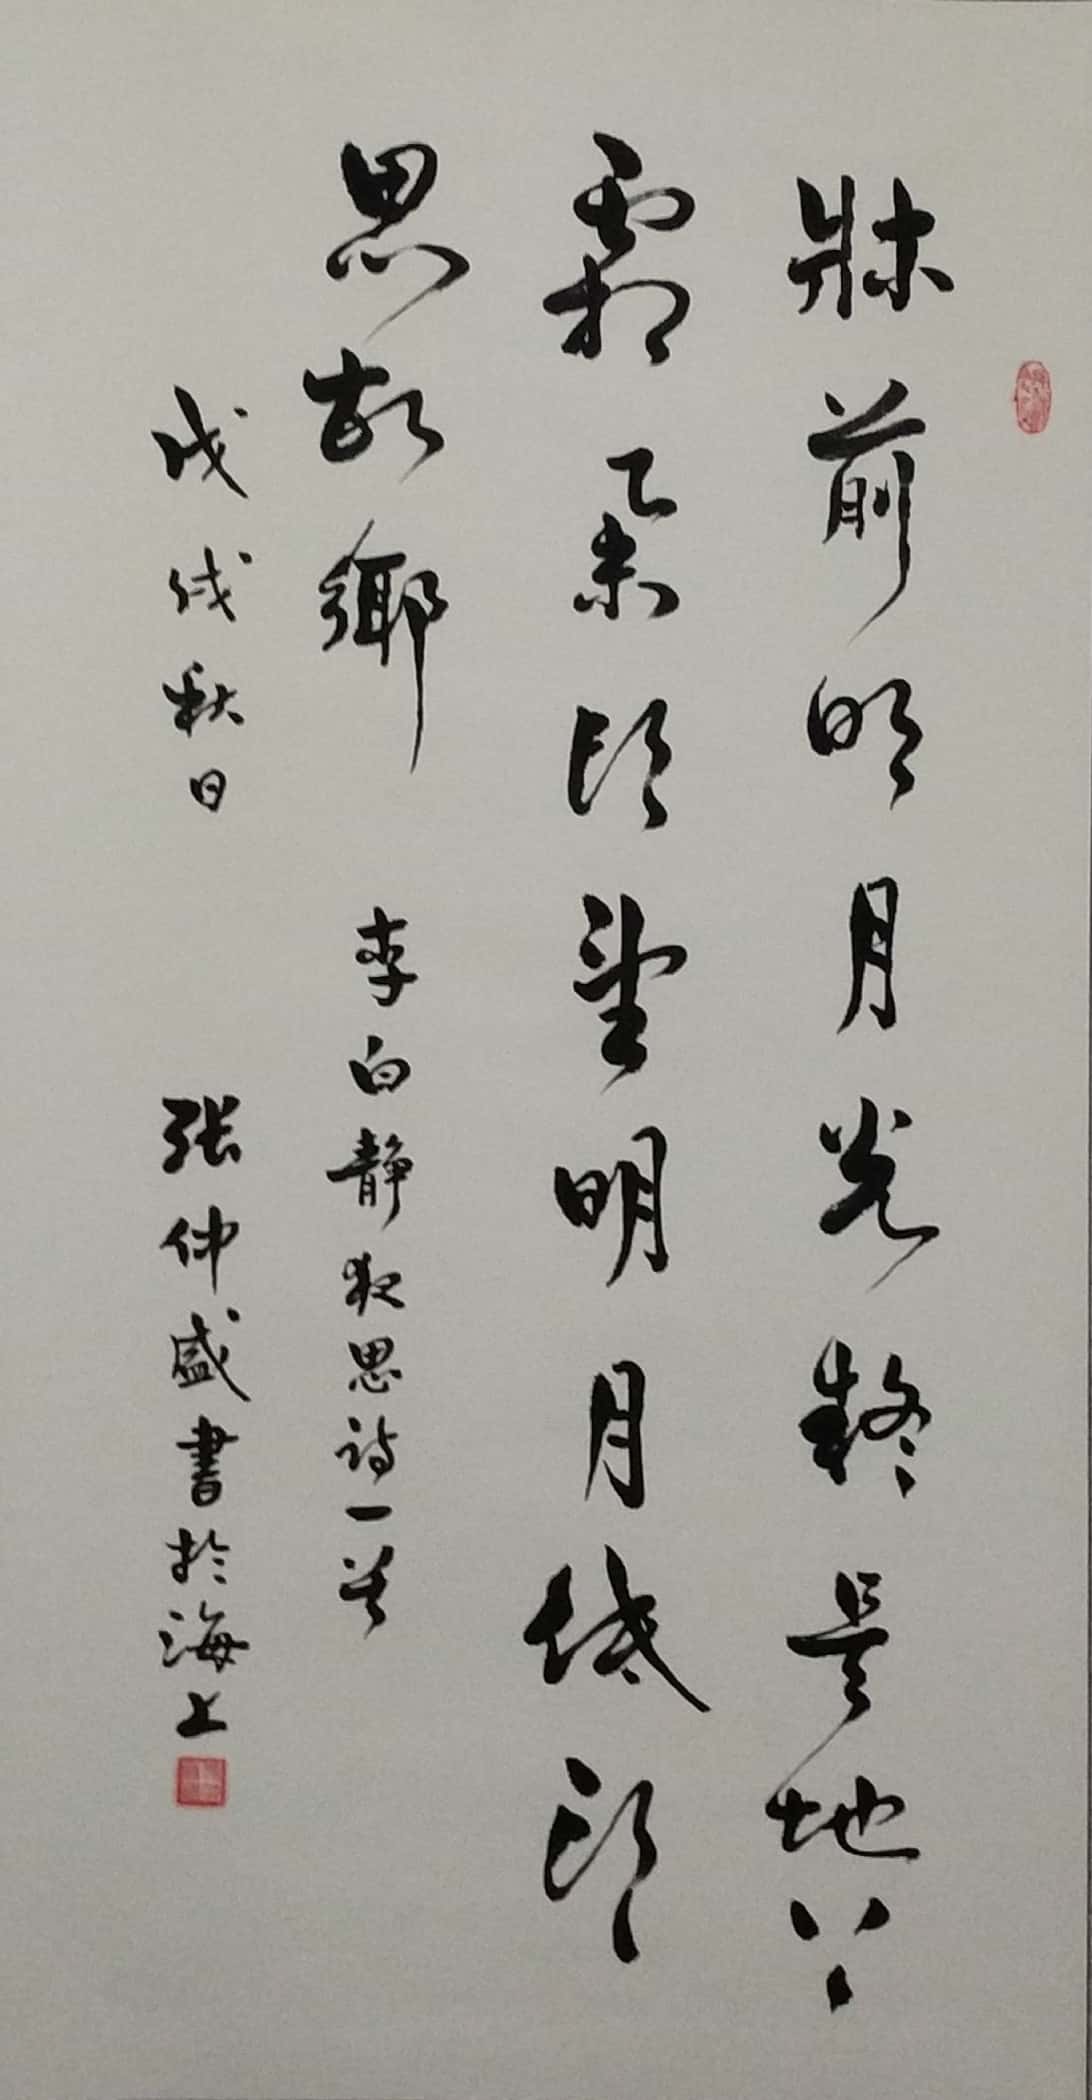 牀前明月光疑是地上
霜舉頭望明月低頭
思故鄉 李白静夜思詩一首
戊戌秋日 張仲盛書於海上